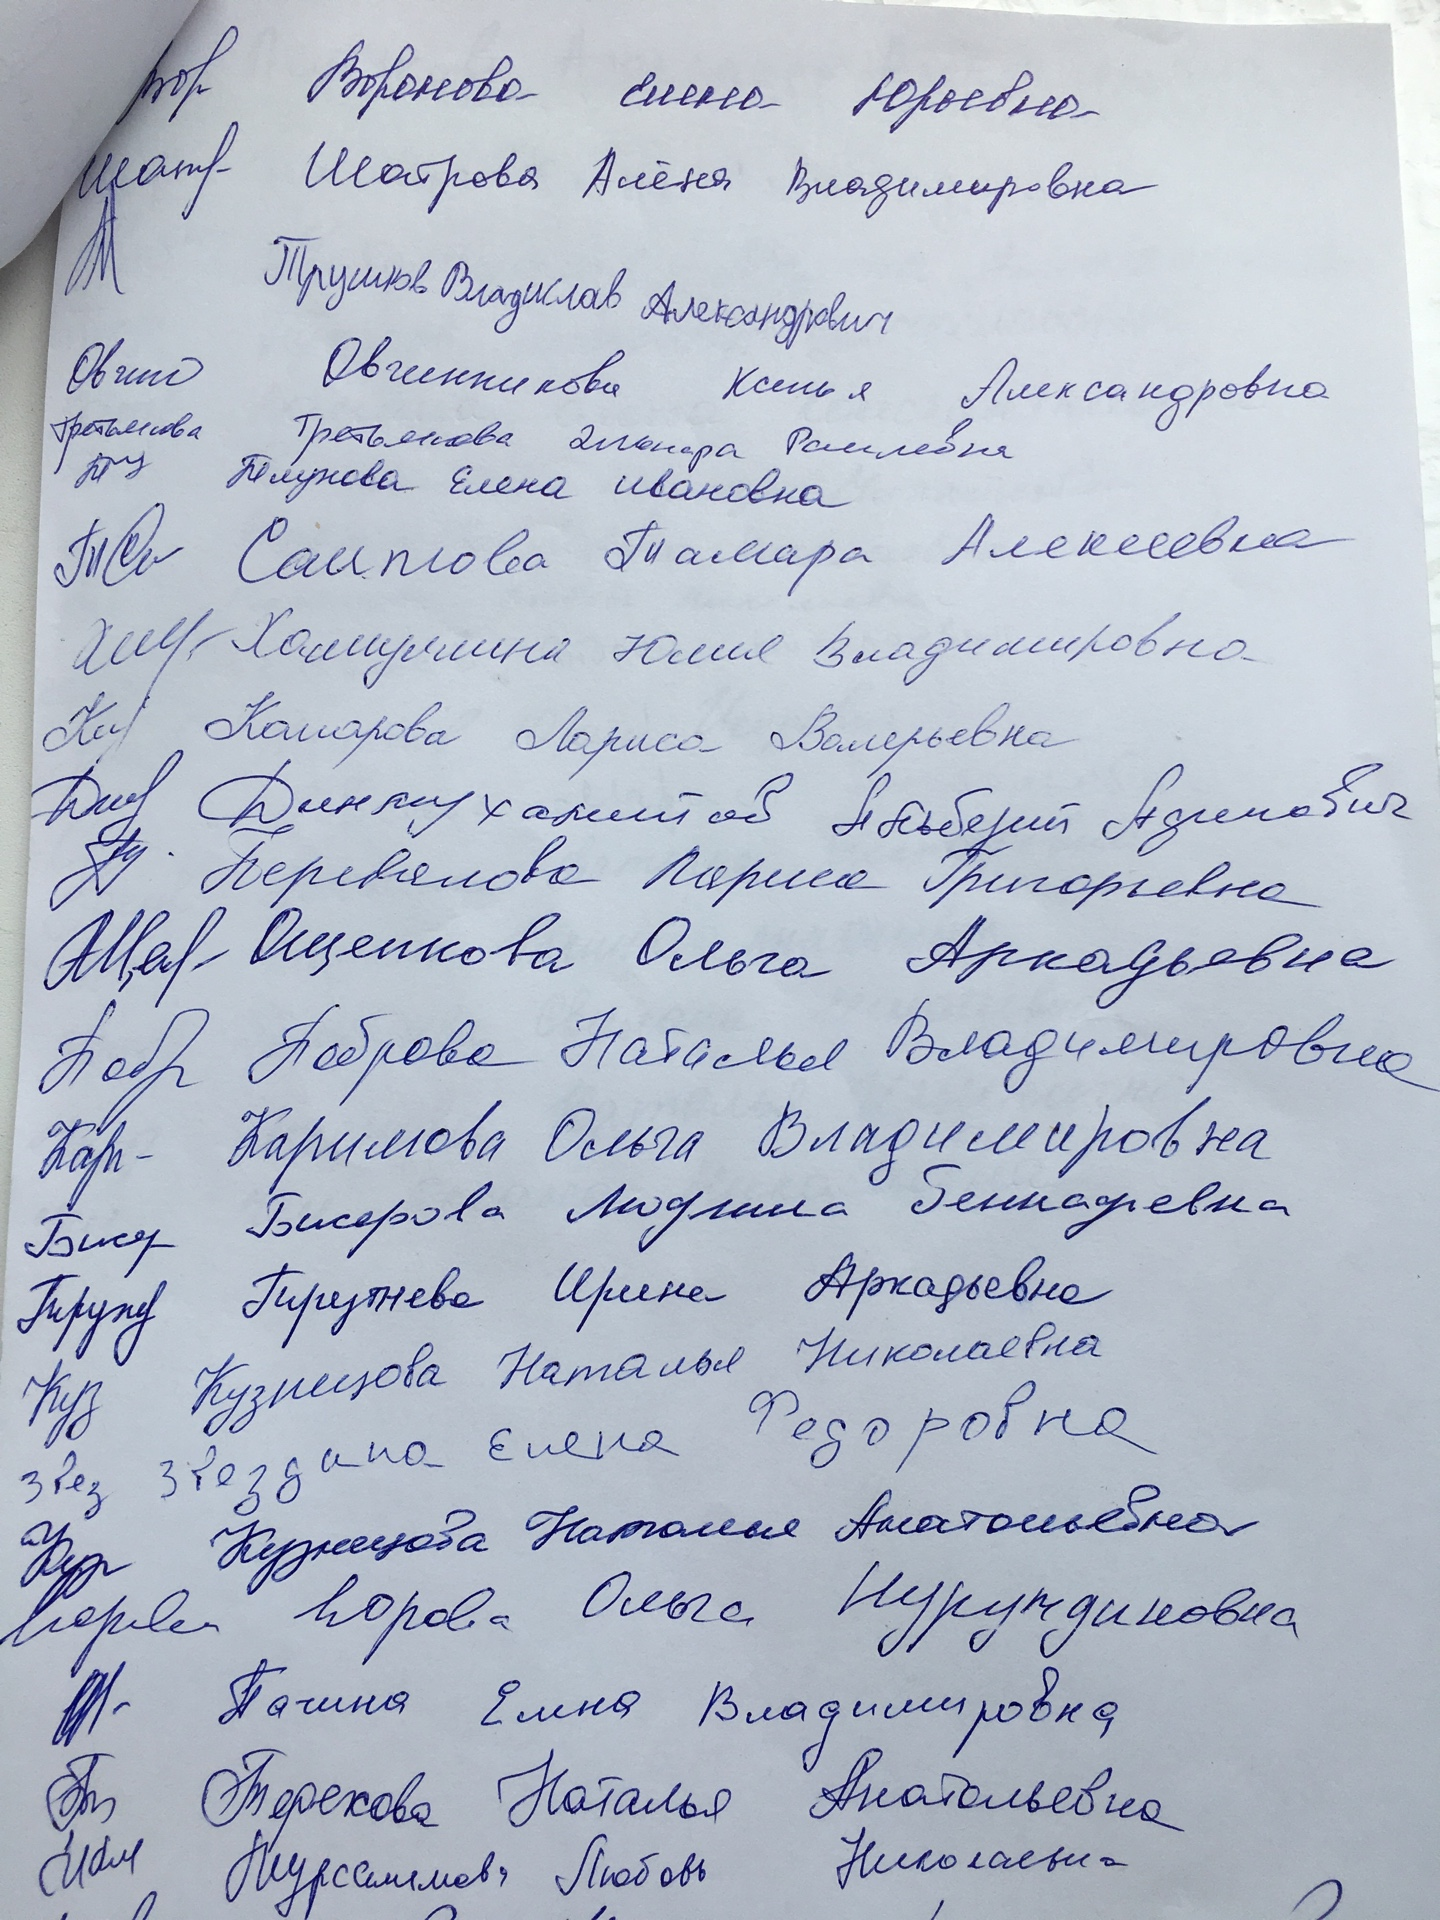 Вор Воронова Елена Юрьевна
Шатр Шатрова Алёна Владимировна
Трушков Владислав Александрович
Овчин Овчинникова Ксенья Александровна
Третьякова Третьякова Эльнара Рамилевна
Елена Ивановна
Саитова Тамара Алексеевна
Хамидуллина Юлия Владимировна
Комарова Лариса Валерьевна
Динмухаметов
Пер Перевалова Лариса Григорьевна
Ощепкова Ольга Аркадьевна
Бобр Боброва Наталья Владимировна
Кари Каримова Ольга Владимировна
Бисер Бисерова Людмила Геннадьевна
Ирина Аркадьевна
Куз Кузнецова Наталья Николаевна
Звез Звездина Елена Федоровна
Куз Кузнецова Наталья Анатольевна
Ольга
Пачина Елена Владимировна
Терехова Наталья Анатольевна
Любовь